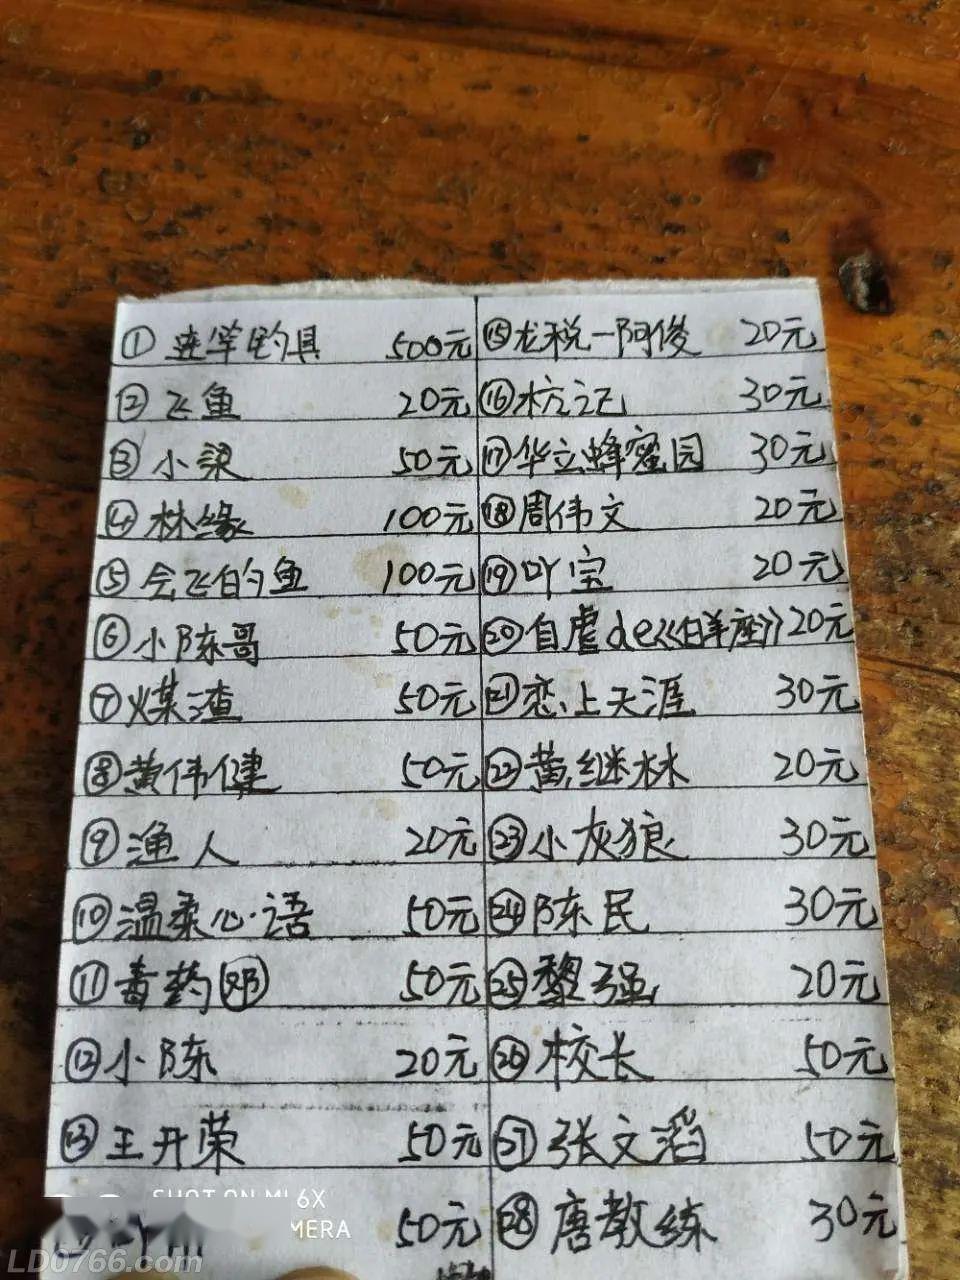 ① 连学钓具 500元
② 飞鱼 20元
③ 小梁 50元
④ 林缘 100元
⑤ 会飞的鱼 100元
⑥ 小陈哥 50元
⑦ 煤渣 50元
⑧ 黄伟健 50元
⑨ 渔人 20元
⑩ 温柔心语 50元
⑪ 毒药(邓) 50元
⑫ 小陈 20元
⑬ 王开荣 50元
50元
⑮ 龙税一阿俊 20元
⑯ 杭记 30元
⑰ 华立蜂蜜园 30元
⑱ 周伟文 20元
⑲ 吖宝 20元
⑳ 自虐de《白羊座》20元
㉑ 恋上天涯 30元
㉒ 黄继林 20元
㉓ 小灰狼 30元
㉔ 陈民 30元
㉕ 黎强 20元
㉖ 校长 50元
㉗ 张文滔 50元
㉘ 唐教练 30元
SHOT ON MI 6X
MERA
LD0766.com